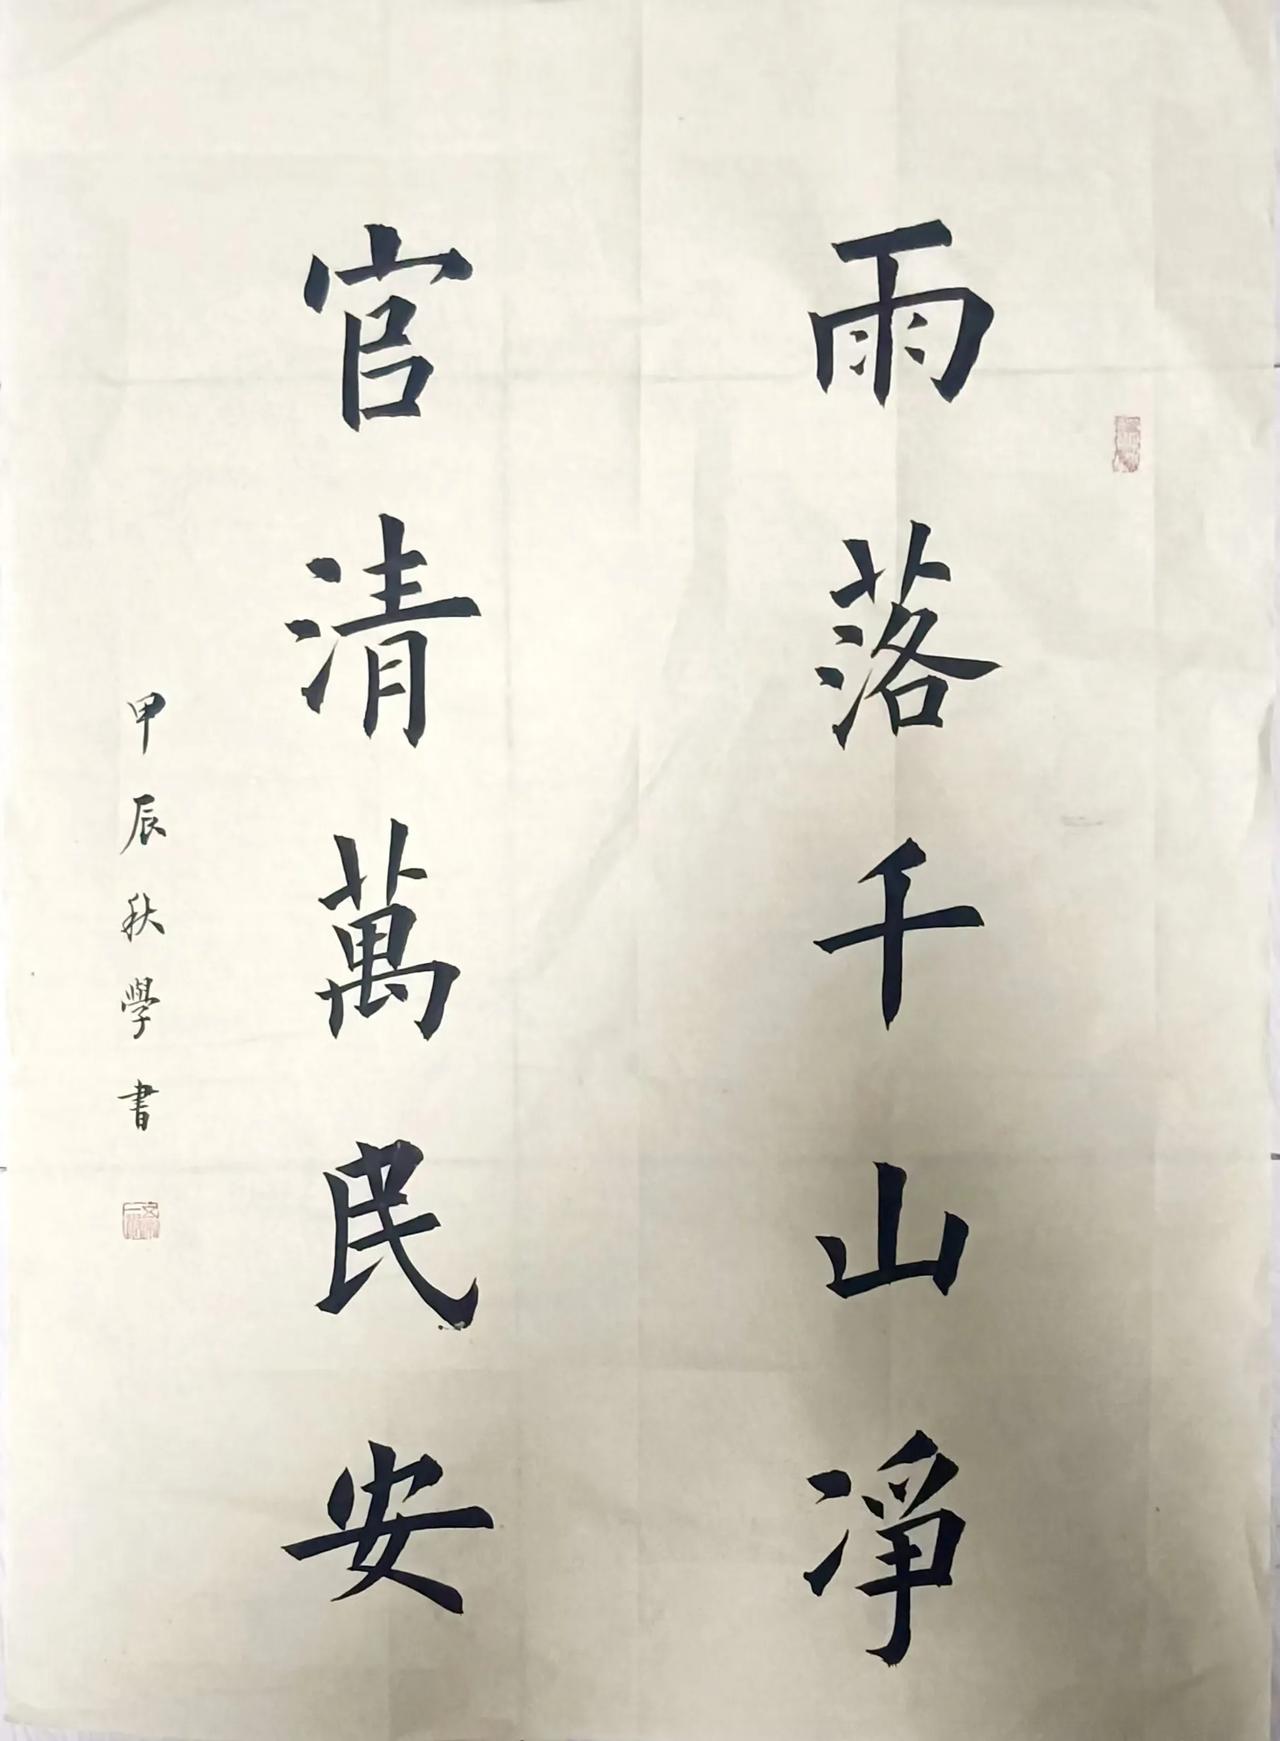 雨落千山淨
官清萬民安
甲辰秋學書